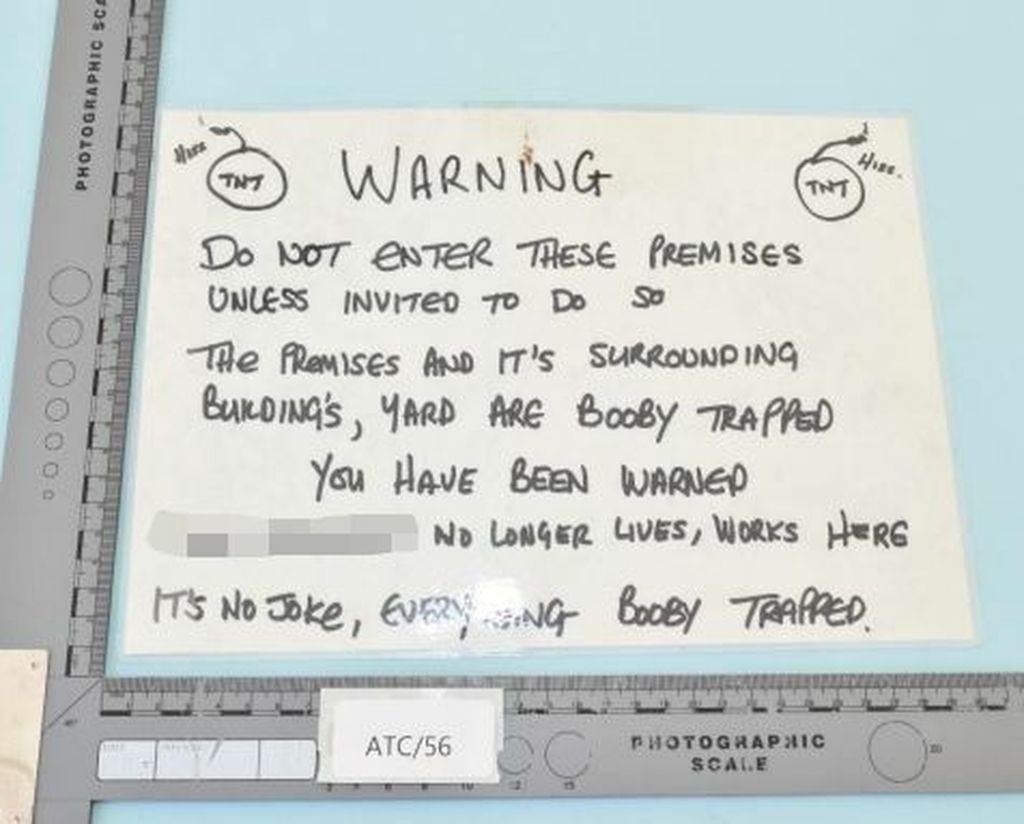 PHOTOGRAPHIC SCA
Hiss
TNT
WARNING
TNT
Hiss.
DO NOT ENTER THESE PREMISES
UNLESS INVITED TO DO SO
THE PREMISES AND IT'S SURROUNDING
BUILDING'S, YARD ARE BOOBY TRAPPED
YOU HAVE BEEN WARNED
NO LONGER LIVES, WORKS HERE
IT'S NO JOKE, BOOBY TRAPPED.
ATC/56
PHOTOGRAPHIC
SCALE